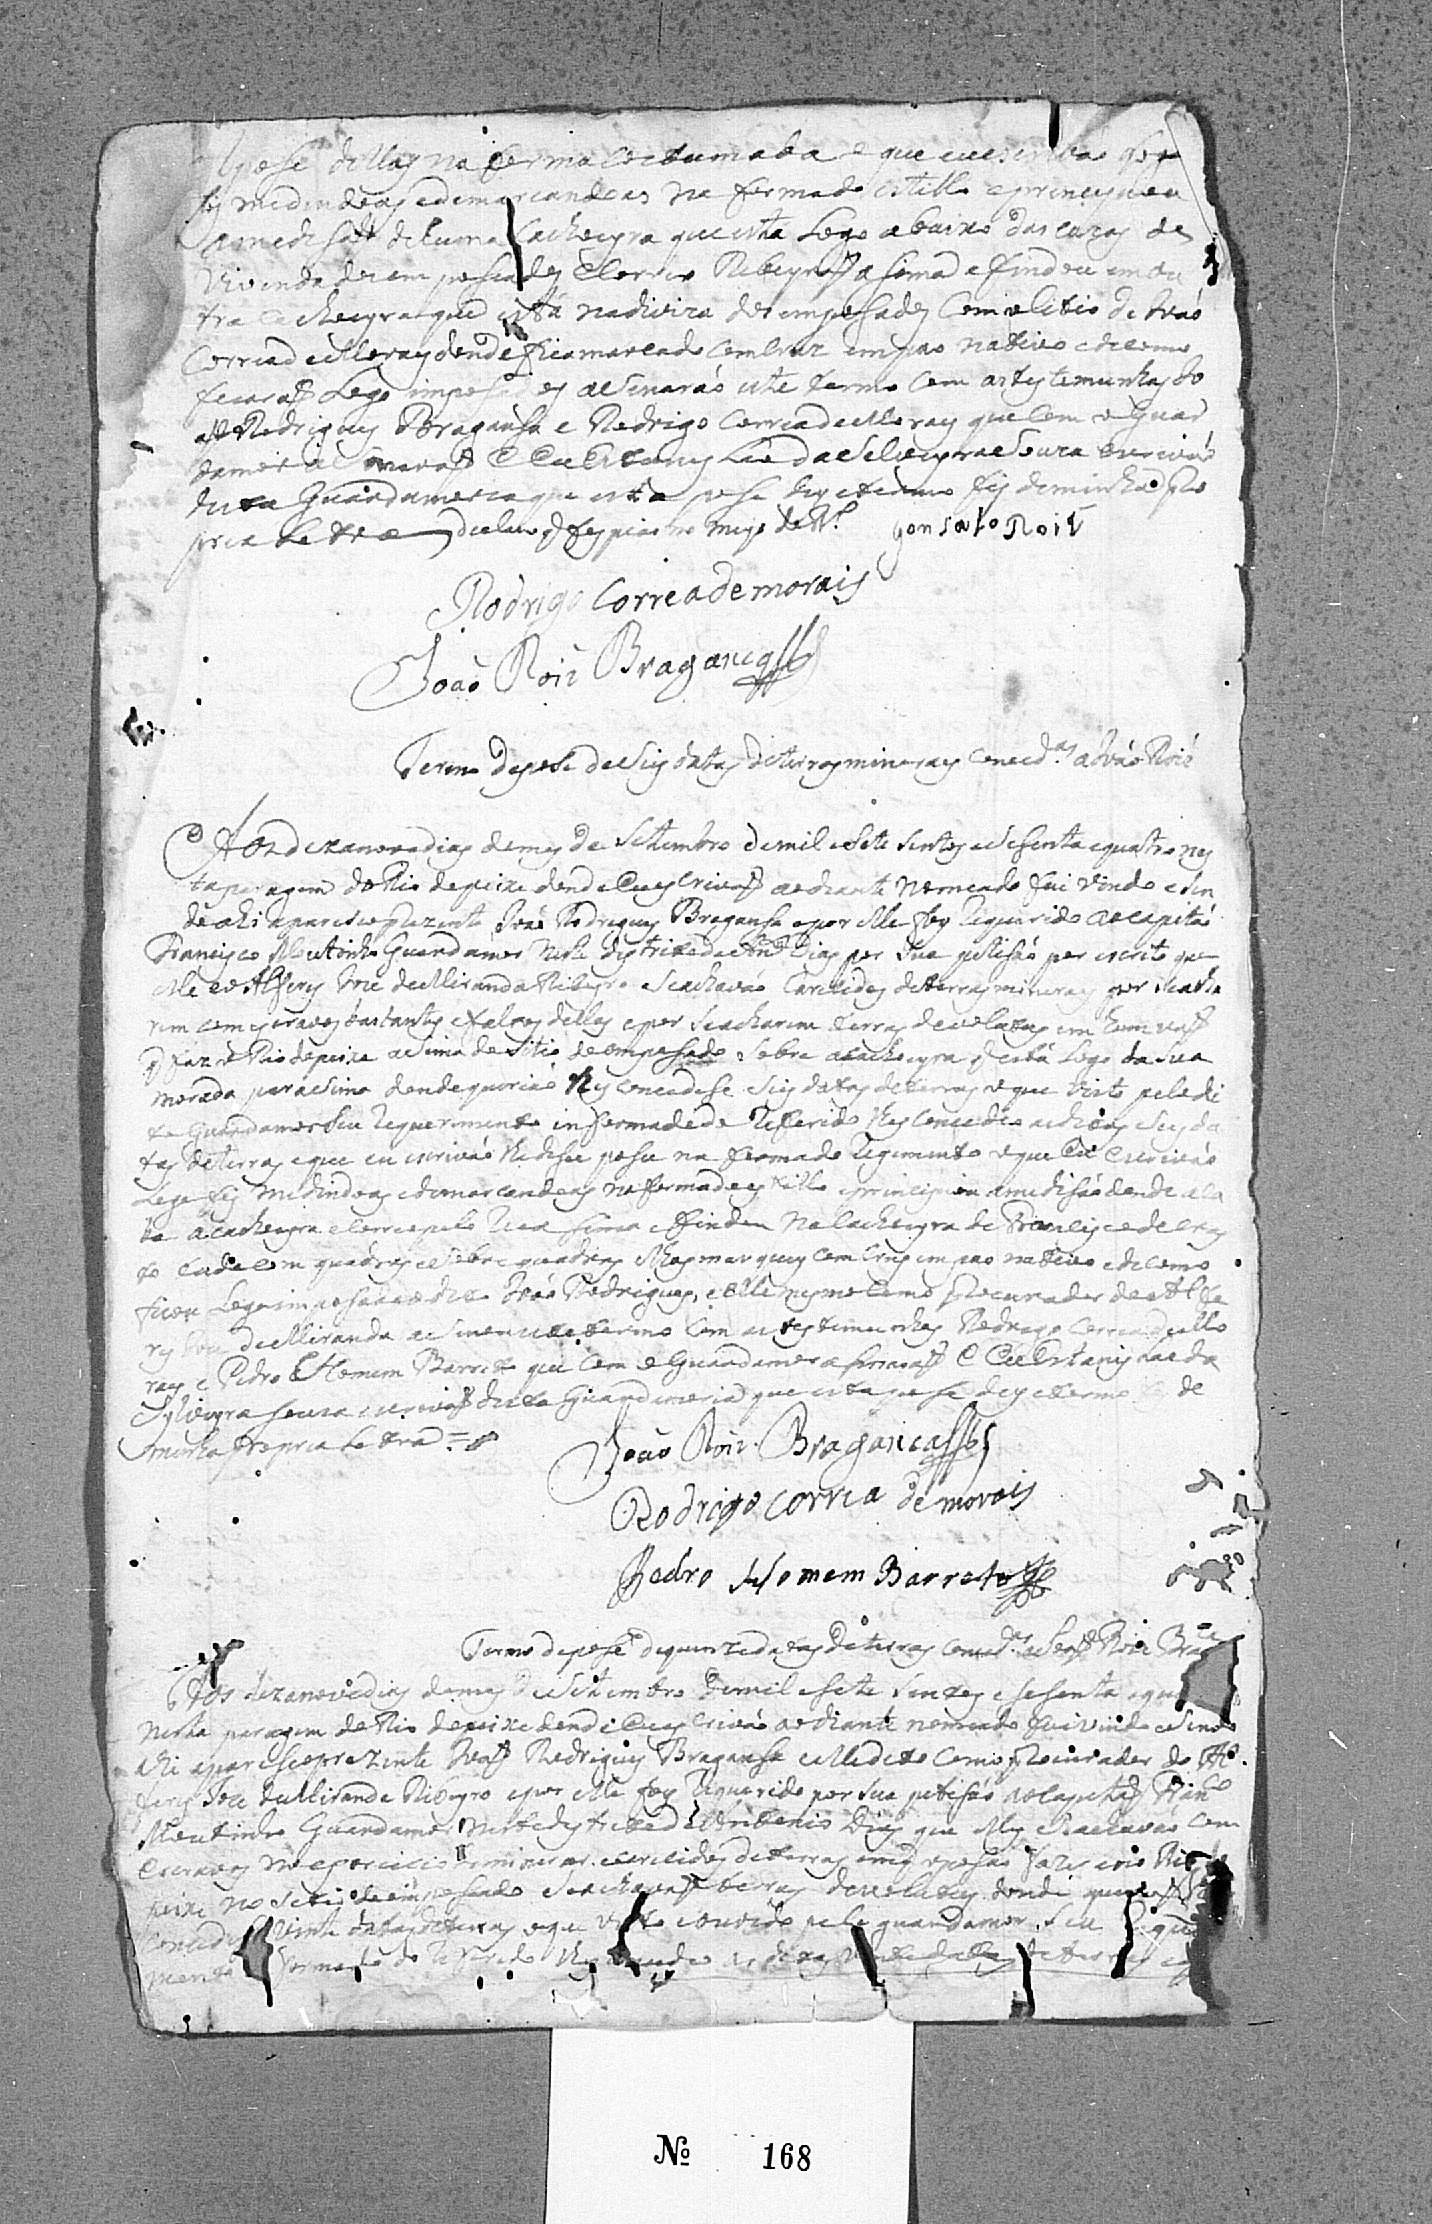 pose dellas na forma costumada e que eu escrivão logo
fis medindoas e demarcandoas na forma do estillo e principiou
a medisaõ de huma Cachoeyra que está Logo abaixo das cazas de
vivenda dos empossados e Correo Ribeyraõ asima e findou em ou
tra cachoeyra que está na divisa dos empossados com o Citio de Joaõ
Correa de Morays donde fica marcado com Cruz em pao nativo e de como
ficaraõ Logo impossados asinaraõ este termo com as testemunhas Jo
aõ Rodrigues Bragansa e Rodrigo Correa de Morays que com o Guar
damor asinaraõ E Eu Estanislao da Silveyra e Souza escrivaõ
desta Guardamoria que esta pose de que termo fis de minha pro
pria Letra declaro q
Gonsalo Roiz
Rodrigo Correa de morais
Joaõ Roiz Braganca
Termo de pose de Seis datas de terras mineraes conced.as a Joaõ Roiz
Aos dezanove dias do mes de Setembro de mil e Sete Sentos e Sesenta e quatro nes
ta paragem do Rio do peixe donde Eu escrivaõ ao diante nomeado fui vindo e Sen
do ahi apareseo prezente Joaõ Rodrigues Bragansa e por elle foy Requerido ao capitaõ
Francisco Moutinho Guardamor neste destrito de Ant.o Dias por Sua petisaõ por escrito que
elle e o Alferes Joze de Miranda Ribeyro Se achavaõ Carecidos de terras mineraes por Se acha
rem com escravos bastantes e faltos dellas e por Se acharem terras devolutas em hum
q faz o Rio do peixe asima do sitio do empossado Sobre a cachoeyra q está Logo da Sua
morada para sima donde queriaõ lhes concedese Seis datas de terras o que visto pelo di
to Guardamor Seu Requerimento informado do Referido lhes concedeo as ditas Seis da
tas de terras e que eu escrivaõ lhe dese pose na forma do Regimento o que Eu Escrivaõ
Logo fis medindoas e demarcandoas na forma do estillo e principiou a medisaõ donde aca
ba a cachoeyra e Correo pelo Rio a sima e findou na Cachoeyra de Francisco de
com quadras e Sobre quadras lhas marquey com Crus em pao nativo e de como
ficou Logo impossado o dito Joaõ Rodrigues, e elle mesmo Como Procurador do Alfe
res Joze de Miranda asinou este termo com as testemunhas Rodrigo Correa de Mo
rays e Pedro Homem Barreto que com o Guardamor asinaraõ E Eu Estanislao da
Sylveyra e Souza escrivaõ desta Guardamoria que esta pose de que termo fis de
minha propria Letra
Joaõ Roiz Braganca
Rodrigo Correa de morais
Pedro Homem Barreto
Termo de pose de quinze datas de terras conced.as a Joaõ Roiz
Aos dezanove dias do mes de Setembro de mil e Sete Sentos e Sesenta e qua
nesta paragem do Rio do peixe donde Eu escrivaõ ao diante nomeado fui vindo e Sendo
ahi apareseo prezente Joaõ Rodrigues Bragansa e elle dito como Procurador do Al
feres Joze de Miranda Ribeyro e por elle foy Requerido por Sua petisaõ ao capitaõ Fran.co
Moutinho Guardamor neste destrito de Antonio Dias que elles Se achavaõ Com
Escravos no exercicio de minerar e carecidos de terras
peixe no Sitio do empossado Se achavaõ terras devolutas donde
vinte datas de terras o que visto e ouvido pelo guardamor Seu
mento informado do Referido lhes concedeo as ditas vinte datas de terras
Nº 168